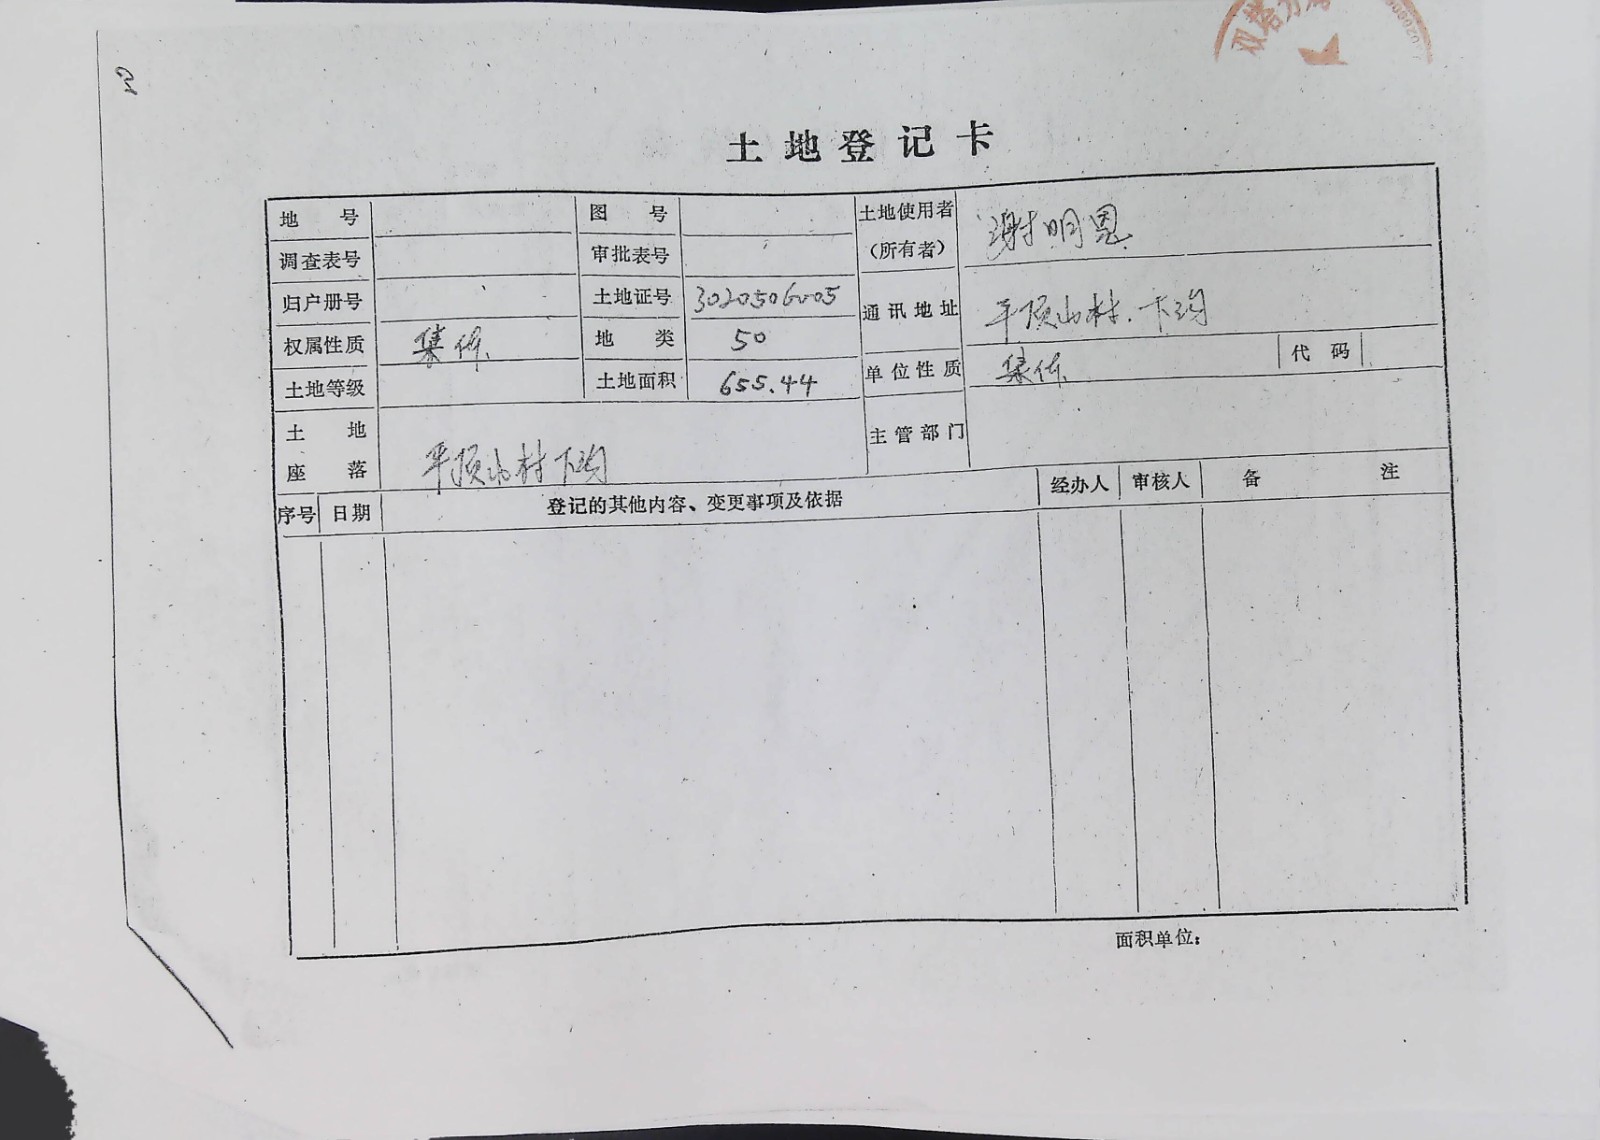 双塔
土地登记卡
地号 图号 土地使用者(所有者) 谢明恩
调查表号 审批表号
归户册号 土地证号 3020506005 通讯地址 平顶山村.下沟
权属性质 集体. 地类 50
土地等级 土地面积 655.44 单位性质 集体. 代码
土地座落 平顶山村下沟 主管部门
序号 日期 登记的其他内容、变更事项及依据 经办人 审核人 备注
面积单位: